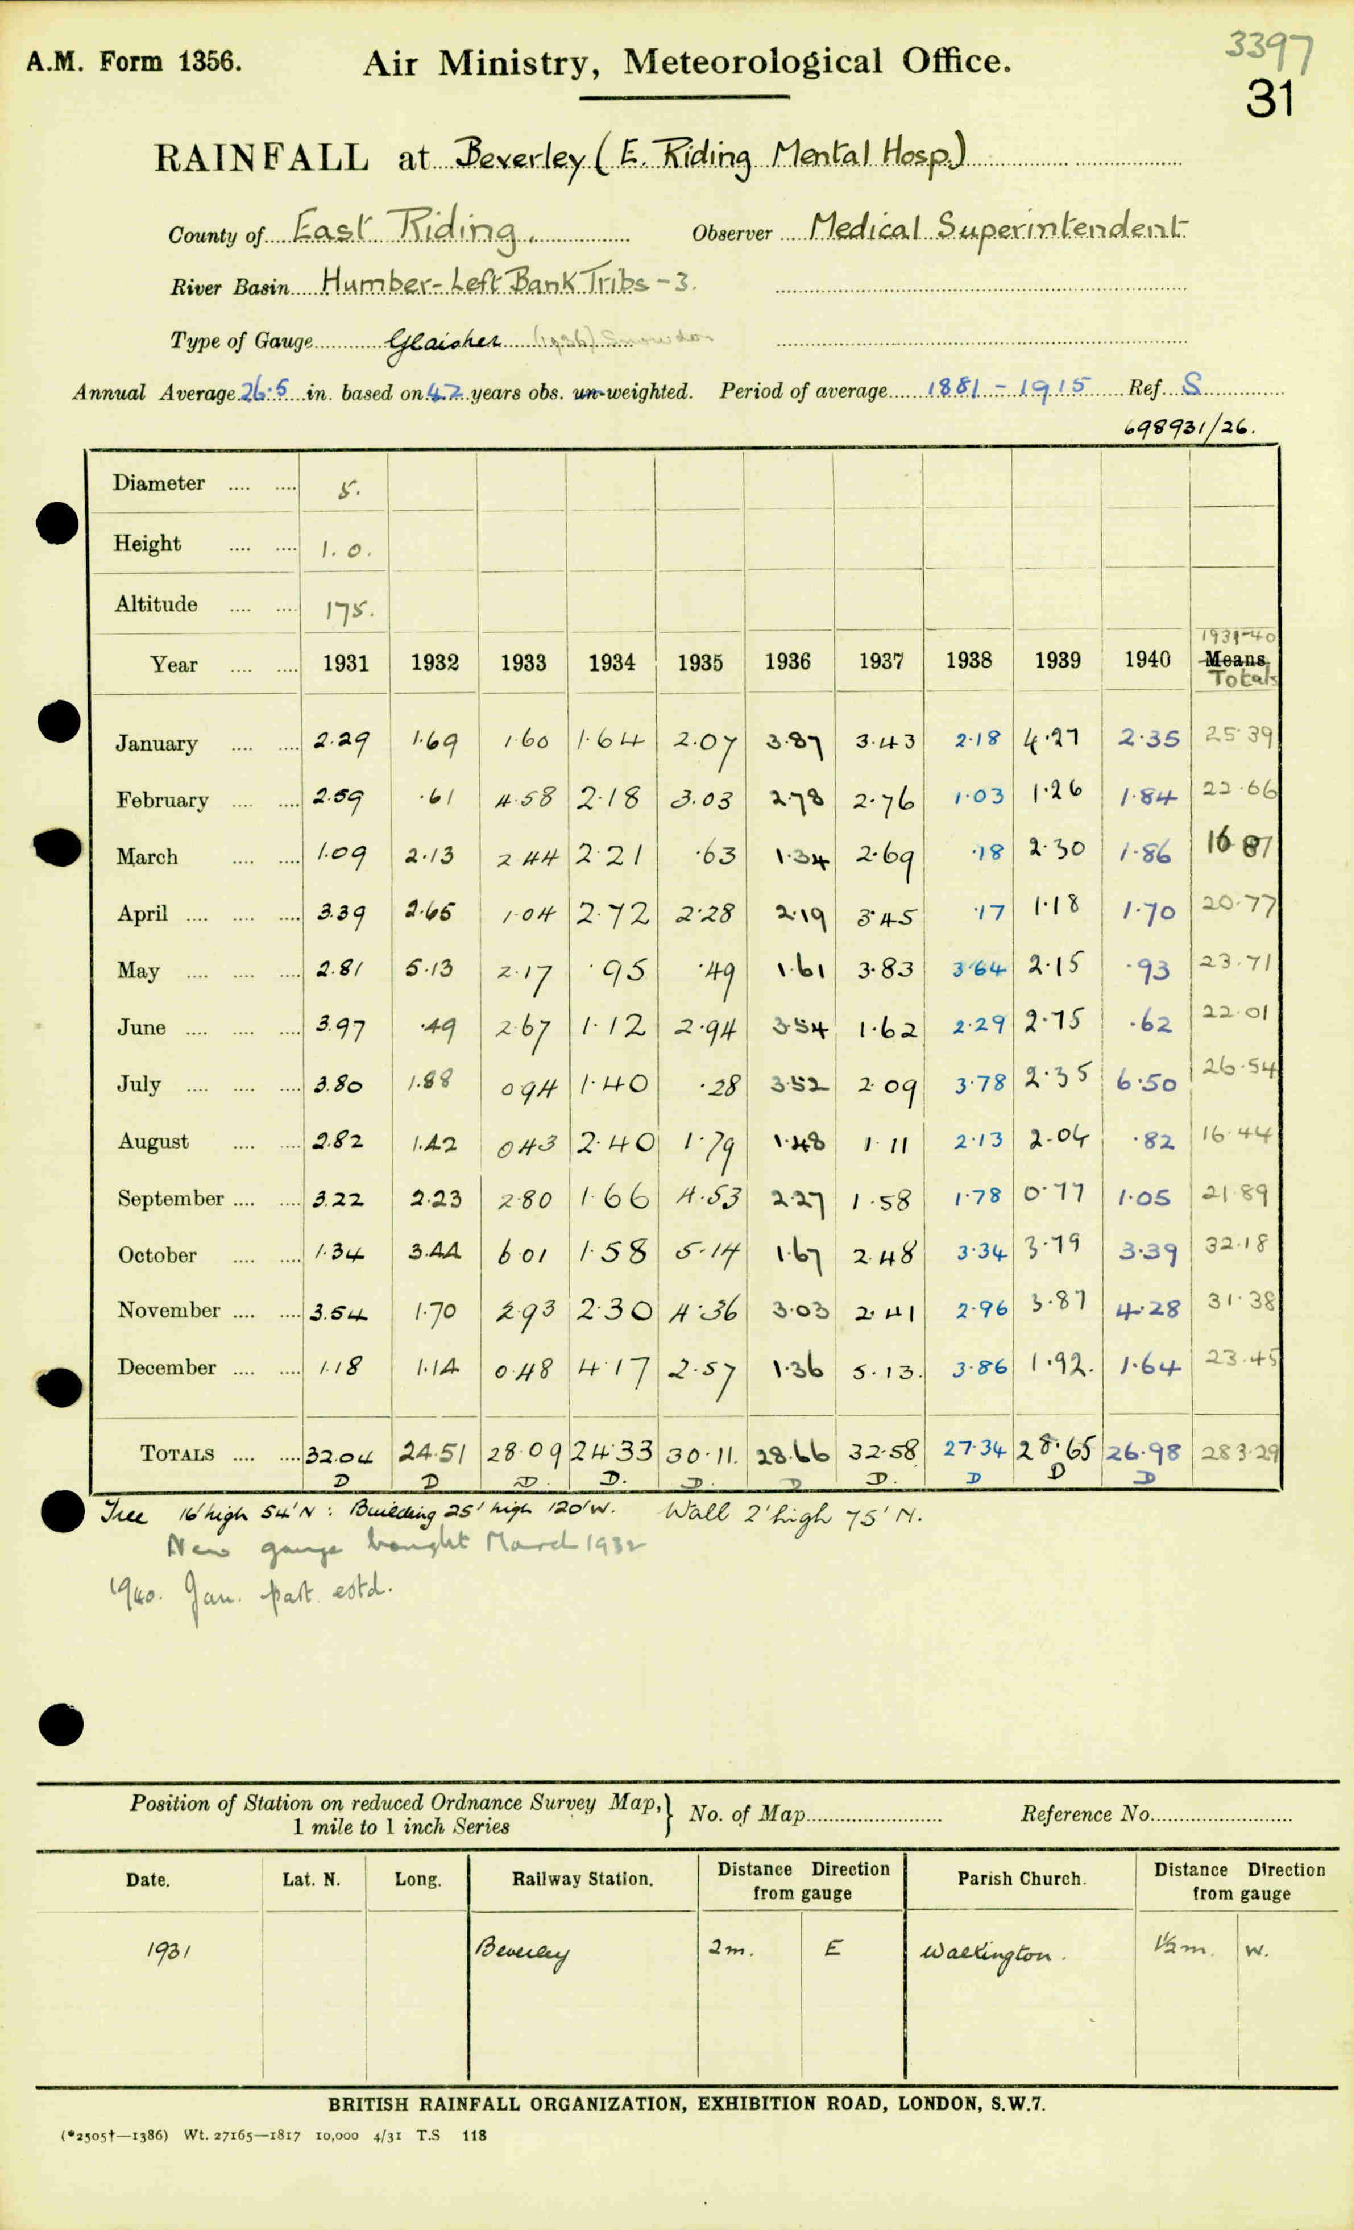 3397
A.M. Form 1356. Air Ministry, Meteorological Office.
31
RAINFALL at Beverley (E. Riding Mental Hosp.)
County of East Riding. Observer Medical Superintendent
River Basin Humber-Left Bank Tribs-3.
Type of Gauge Glaisher (1936) Snowdon
Annual Average 26.5 in. based on 42 years obs. un-weighted. Period of average 1881-1915 Ref. S
698931/26.
Diameter .... .... 5.
Height .... .... 1.0.
Altitude .... .... 175.
1931-40
Year .... .... 1931 1932 1933 1934 1935 1936 1937 1938 1939 1940 Means
Totals
January .... .... 2.29 1.69 1.60 1.64 2.07 3.87 3.43 2.18 4.27 2.35 25.39
February .... .... 2.59 .61 4.58 2.18 3.03 2.78 2.76 1.03 1.26 1.84 22.66
March .... .... 1.09 2.13 2.44 2.21 .63 1.34 2.69 .18 2.30 1.86 16.87
April .... .... .... 3.39 2.65 1.04 2.72 2.28 2.19 3.45 .17 1.18 1.70 20.77
May .... .... .... 2.81 5.13 2.17 .95 .49 1.61 3.83 3.64 2.15 .93 23.71
June .... .... .... 3.97 .49 2.67 1.12 2.94 3.54 1.62 2.29 2.75 .62 22.01
July .... .... .... 3.80 1.88 0.94 1.40 .28 3.52 2.09 3.78 2.35 6.50 26.54
August .... .... 2.82 1.42 0.43 2.40 1.79 1.48 1.11 2.13 2.04 .82 16.44
September .... .... 3.22 2.23 2.80 1.66 4.53 2.27 1.58 1.78 0.77 1.05 21.89
October .... .... 1.34 3.44 6.01 1.58 5.14 1.67 2.48 3.34 3.79 3.39 32.18
November .... .... 3.54 1.70 2.93 2.30 4.36 3.03 2.41 2.96 3.87 4.28 31.38
December .... .... 1.18 1.14 0.48 4.17 2.57 1.36 5.13. 3.86 1.92. 1.64 23.45
TOTALS .... .... 32.04 24.51 28.09 24.33 30.11. 28.66 32.58 27.34 28.65 26.98 283.29
D D D. D. D. D D. D D D
Tree 16' high 54' N: Building 25' high 120' W. Wall 2' high 75' N.
New gauge bought March 1932
1940. Jan. part estd.
Position of Station on reduced Ordnance Survey Map,} No. of Map.......... Reference No..........
1 mile to 1 inch Series
Date. Lat. N. Long. Railway Station. Distance Direction from gauge Parish Church. Distance Direction from gauge
1931 Beverley 2m. E Walkington. 1½m. W.
BRITISH RAINFALL ORGANIZATION, EXHIBITION ROAD, LONDON, S.W.7.
(*2505†—1386) Wt. 27165—1817 10,000 4/31 T.S 118